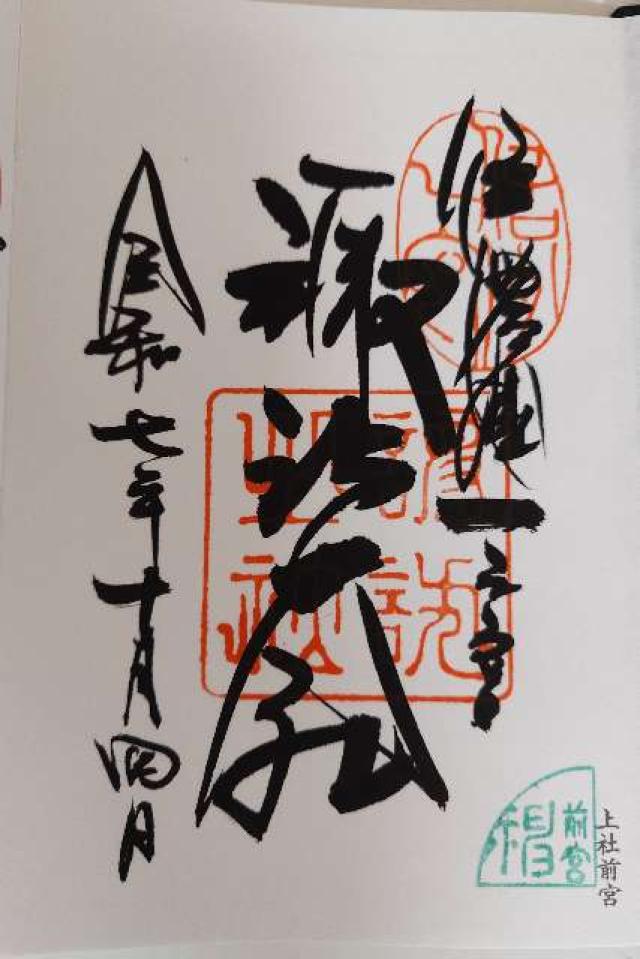 信濃國一之宮
諏訪大社
令和七年十月四日
前宮
上社前宮